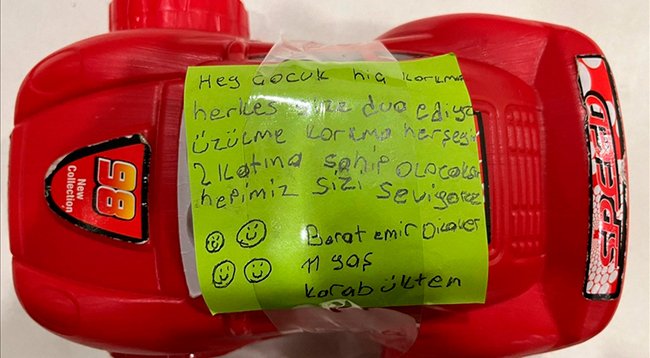 Hey Çocuk hiç korkma
herkes size dua ediyo
üzülme korkma herşeyi
2 katına sahip olacaks
hepimiz sizi seviyoruz
Barat emir
11 yaş
karabükten
86
New
Collection
SPEED